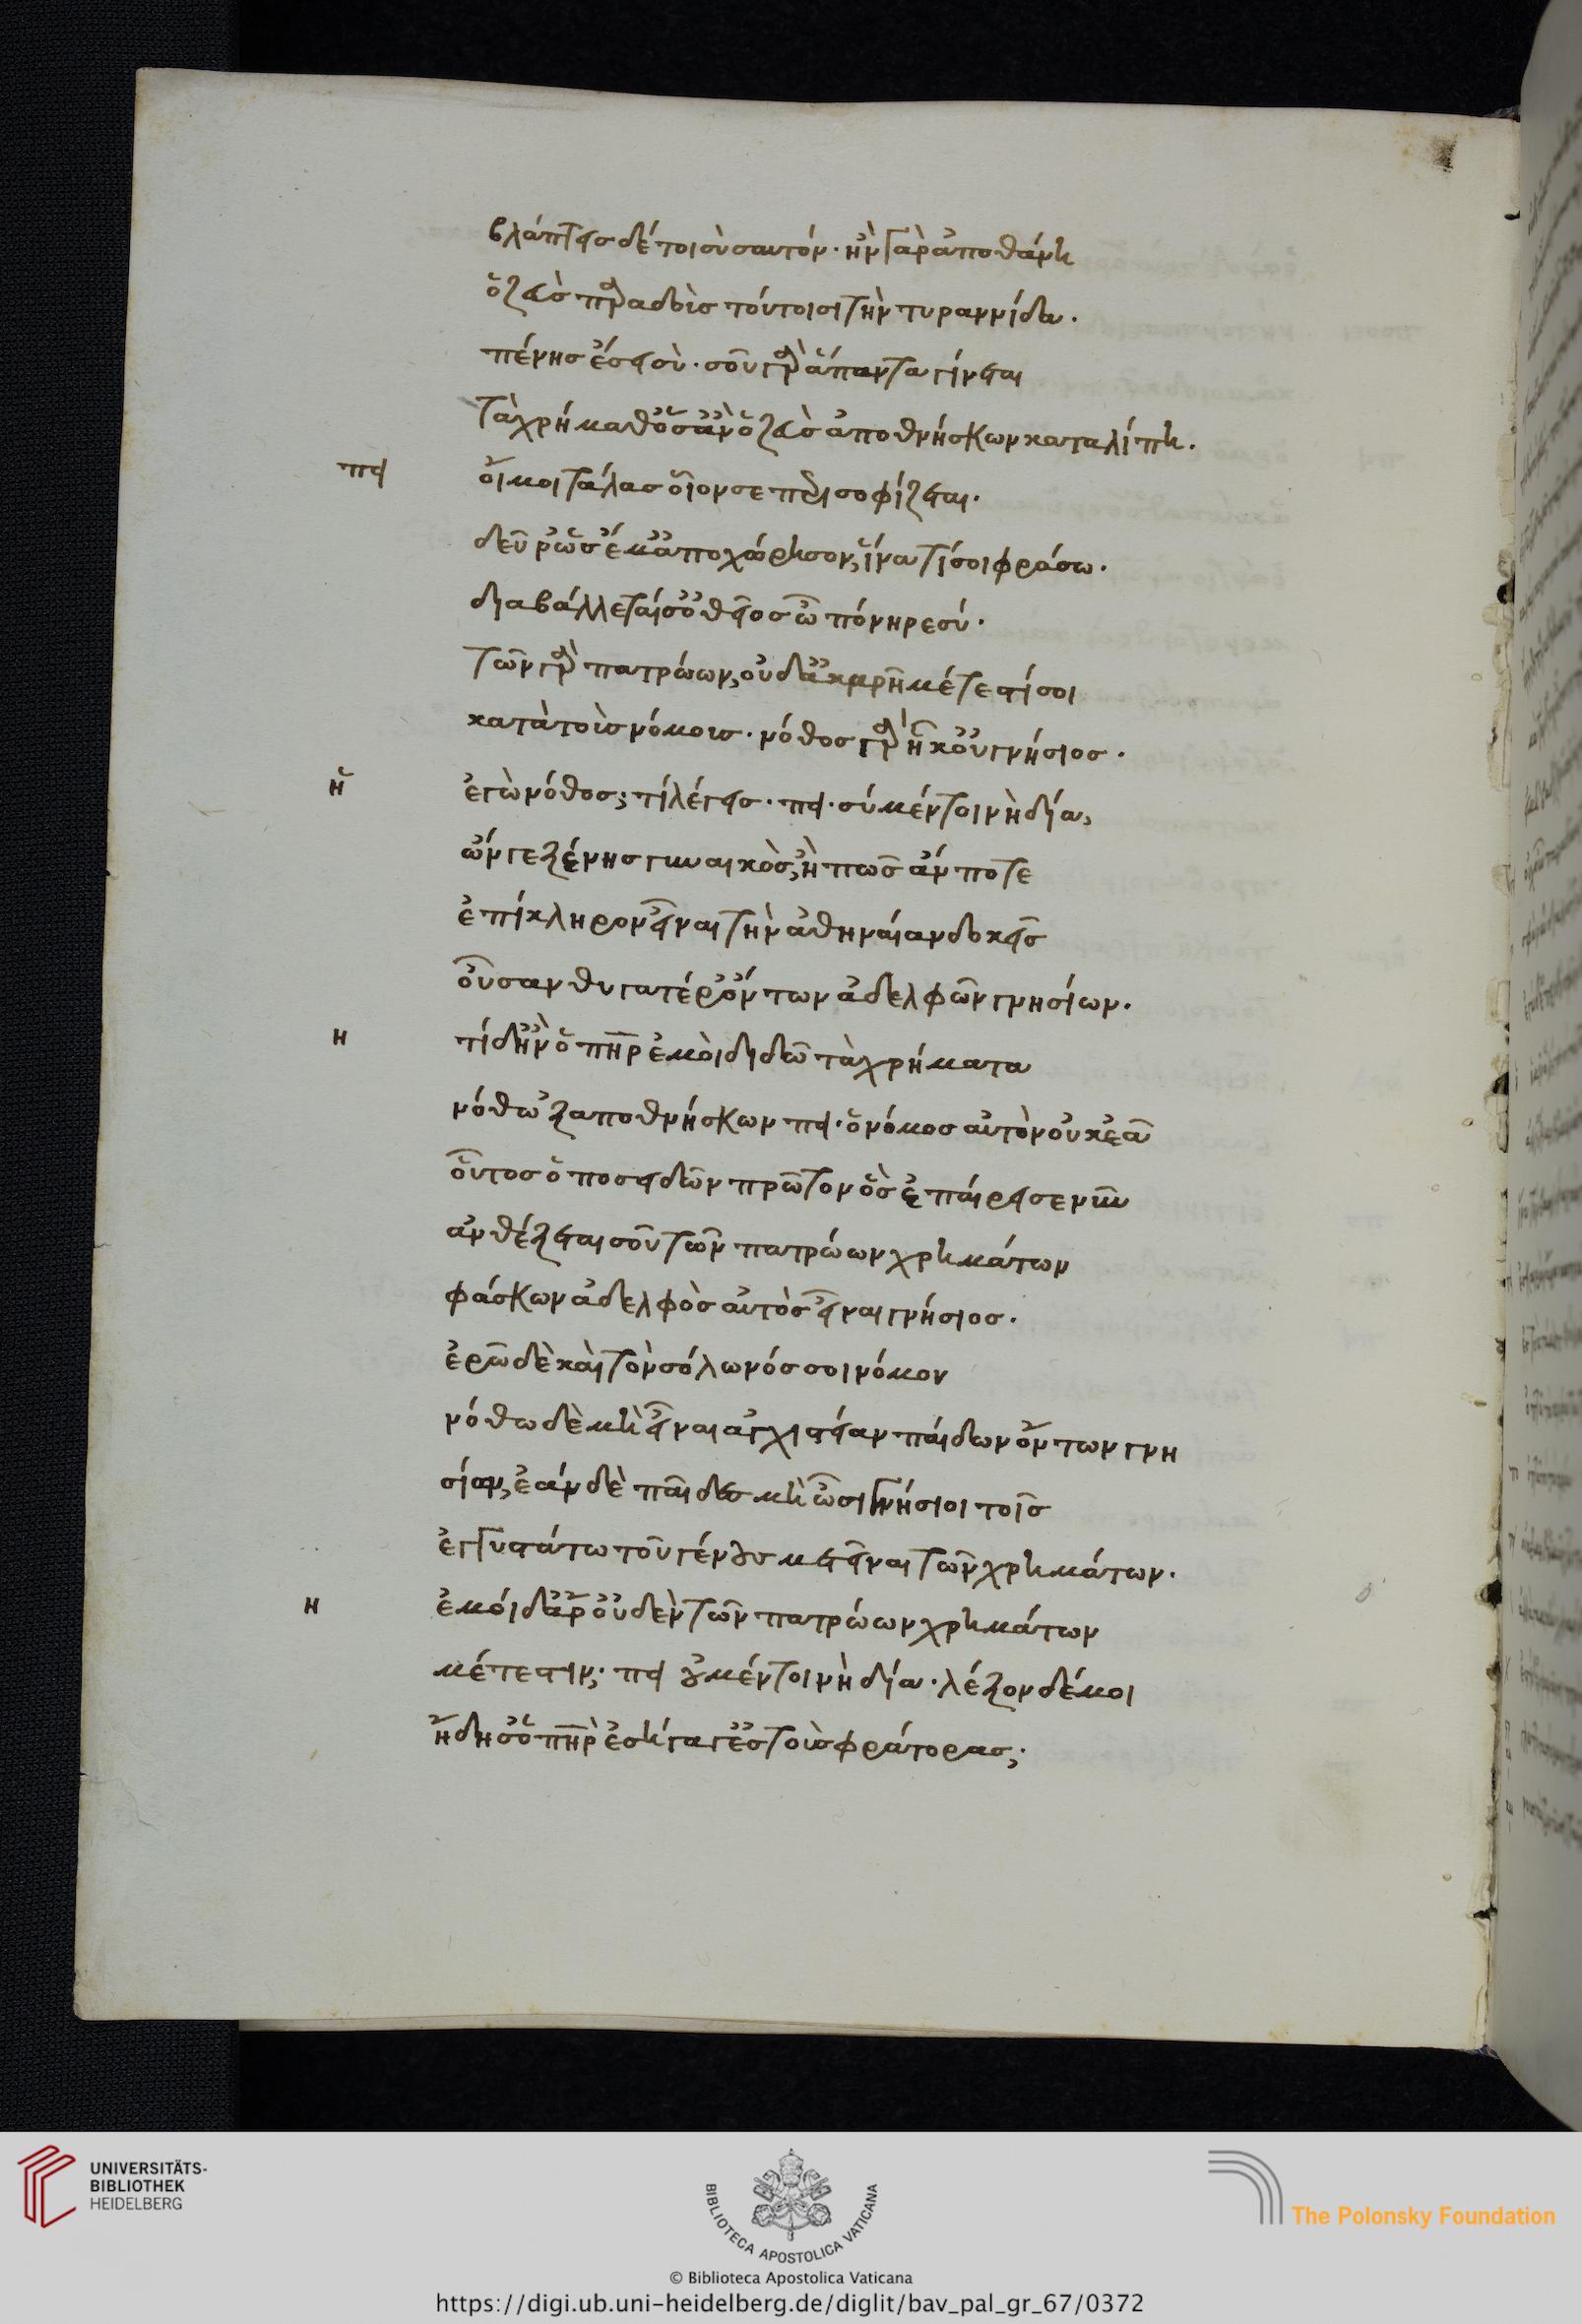 βλάπτεις δέ τοι σὺ σαυτόν· ἢν γὰρ ἀποθάνη
ὁ ζεὺς παραδοὺς τούτοισι τὴν τυραννίδα.
πένης ἔσει σύ· σοῦ γὰρ ἅπαντα γίνεται
τὰ χρήμαθ' ὅσ' ἂν ὁ ζεὺς ἀποθνήσκων καταλίπη.
πει οἴμοι τάλας οἷόν σε περισοφίζεται.
δεῦρ' ὡς ἔμ' ἀποχώρησον, ἵνα τί σοι φράσω.
διαβάλλεταί σ' ὁ θεῖος ὦ πόνηρε σύ.
τῶν γὰρ πατρώων, οὐδ' ἀκαρῆ μέτεστί σοι
κατὰ τοὺς νόμους· νόθος γὰρ εἶ κοὐ γνήσιος.
ἡ ἐγὼ νόθος; τί λέγεις· πει· σὺ μέντοι νὴ δία,
ὤν γε ξένης γυναικός, ἢ πῶς ἄν ποτε
ἐπίκληρον εἶναι τὴν ἀθηναίαν δοκεῖς
οὖσαν θυγατέρ' ὄντων ἀδελφῶν γνησίων.
η τί δ' ἢν ὁ πηρ ἐμοὶ διδῶ τὰ χρήματα
νόθω 'ξαποθνήσκων πει· ὁ νόμος αὐτὸν οὐκ ἐᾶ
οὗτος ὁ ποσειδῶν πρῶτον ὃς ἐπαίρει σε νῦν
ἀνθέξεταί σου τῶν πατρώων χρημάτων
φάσκων ἀδελφὸς αὐτὸς εἶναι γνήσιος.
ἐρῶ δὲ καὶ τὸν σόλωνός σοι νόμον
νόθω δὲ μὴ εἶναι ἀγχιστείαν παίδων ὄντων γνη
σίων, ἐὰν δὲ παῖδες μὴ ὦσι γνήσιοι τοῖς
ἐγγυτάτω τοῦ γένους μετεῖναι τῶν χρημάτων.
η ἐμοὶ δ' ἄρ' οὐδὲν τῶν πατρώων χρημάτων
μέτεστιν; πει οὐ μέντοι νὴ δία· λέξον δέ μοι
ἤδη σ' ὁ πηρ ἐσήγαγ' ἐς τοὺς φράτορας;
UNIVERSITÄTS-
BIBLIOTHEK
HEIDELBERG
BIBLIOTECA APOSTOLICA VATICANA
The Polonsky Foundation
© Biblioteca Apostolica Vaticana
https://digi.ub.uni-heidelberg.de/diglit/bav_pal_gr_67/0372